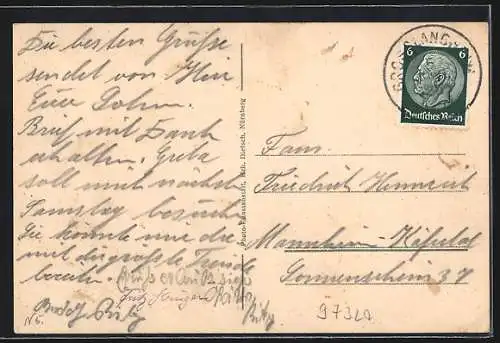 Die besten Grüße
sendet von hier
Euer Sohn.
Brief mit Dank
erhalten. Greta
soll mich nächst
Samstag besuchen
Sie könnte mir die
mit die größte Freude
bereiten.
Rudolf
Fritz
N5.
Photo-Kunstanstalt, Hch. Dietsch, Nürnberg
GROSSLANGHEIM
6 6
Deutsches Reich
Fam.
Friedrich Heinrich
Mannheim-Käfertal
Sonnenschein 37
97320